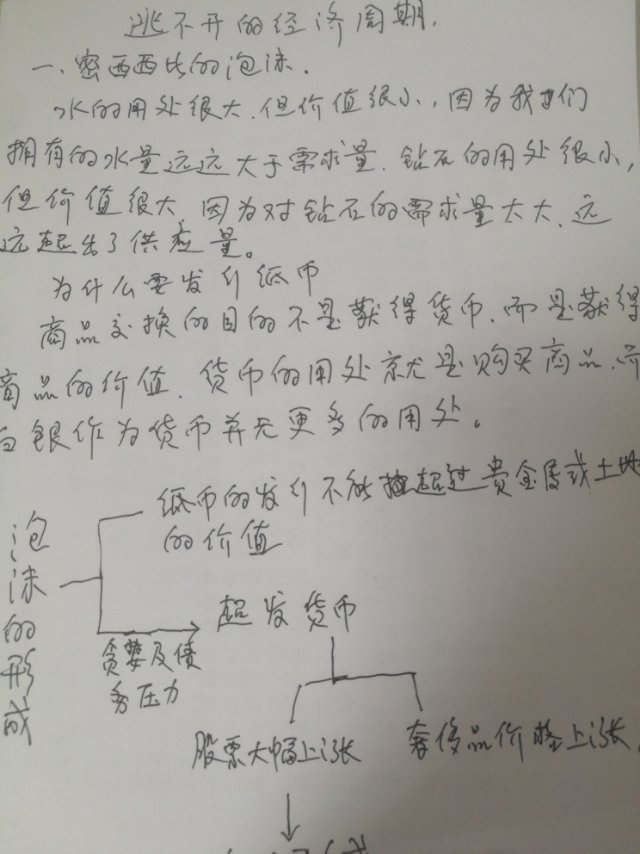 逃不开的经济周期.
一、密西西比的泡沫.
水的用处很大.但价值很小,因为我们
拥有的水量远远大于需求量.钻石的用处很小,
但价值很大,因为对钻石的需求量太大,远
远超出了供应量。
为什么要发行纸币
商品交换的目的不是获得货币.而是获得
商品的价值.货币的用处就是购买商品.而
白银作为货币并无更多的用处。
泡沫的形成
纸币的发行不能超过贵金属或土地
的价值
贪婪及债
务压力
超发货币
股票大幅上涨
奢侈品价格上涨.